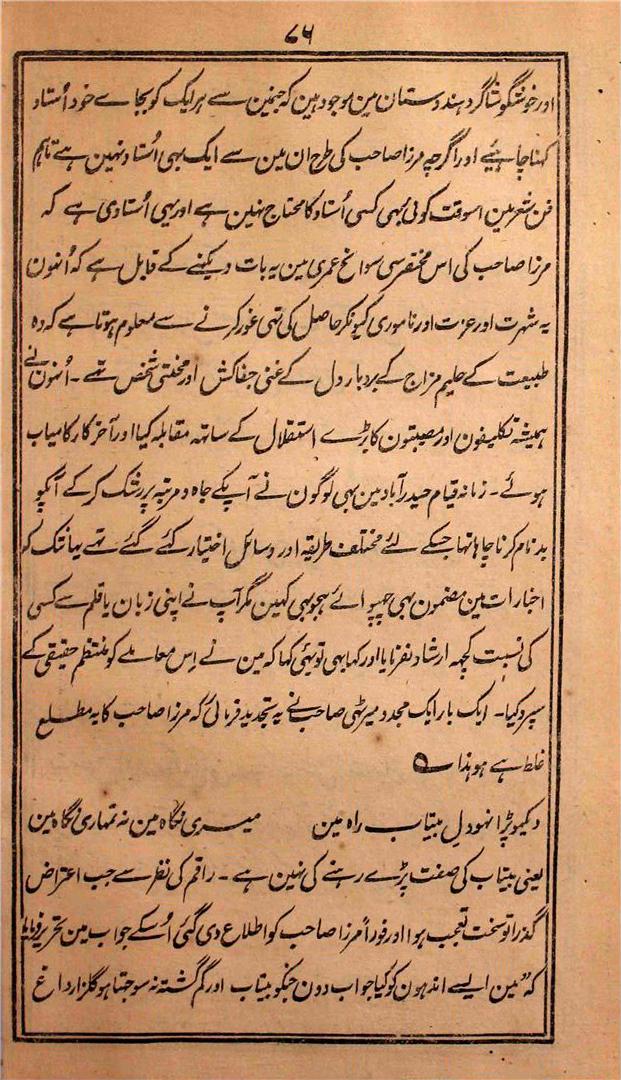 ۷۶
اور خوشگو شاگرد ہندوستان مین موجود ہین کہ جنمین سے ہر ایک کو بجاے خود اُستاد
کہنا چاہیئے اور اگرچہ مرزا صاحب کی طرح ان مین سے ایک بہی اُستاد نہین ہے تاہم
فن شعر مین اسوقت کوئی بہی کسی اُستاد کا محتاج نہین ہے اور یہی اُستادی ہے کہ
مرزا صاحب کی اس مختصر سی سوانح عمری مین یہ بات دیکہنے کے قابل ہے کہ اُنہون
یہ شہرت اور عزت اور ناموری کیونکر حاصل کی تہی غور کرنے سے معلوم ہوتا ہے کہ وہ
طبیعت کے حلیم مزاج کے بردبار دل کے غنی جفاکش اور محنتی شخص تہے ۔ اُنہون نے
ہمیشہ تکلیفون اور مصیبتون کا بڑے استقلال کے ساتہہ مقابلہ کیا اور آخر کار کامیاب
ہوئے ۔ زمانہ قیام حیدرآباد مین بہی لوگون نے آپکے جاہ و مرتبہ پر رشک کرکے آپکو
بدنام کرنا چاہا تہا جسکے لئے مختلف طریقہ اور وسائل اختیار کئے گئے تہے یہانتک کہ
اخبارات مین مضمون بہی چہپوائے ہجو بہی کہین مگر آپ نے اپنی زبان یا قلم سے کسی
کی نسبت کچہہ ارشاد نفرمایا اور کہا بہی تو یہی کہا کہ مین نے اِس معاملے کو منتظم حقیقی کے
سپرد کیا ۔ ایک بار ایک مجدد میرٹہی صاحب نے یہ تجدید فرمائی کہ مرزا صاحب کا یہ مطلع
غلط ہے ہو ہذا ؎
دیکہو پڑا نہو دلِ بیتاب راہ مین میری نگاہ مین نہ تمہاری نگاہ مین
یعنی بیتاب کی صفت پڑے رہنے کی نہین ہے ۔ راقم کی نظر سے جب اعتراض
گذرا تو سخت تعجب ہوا اور فوراً مرزا صاحب کو اطلاع دی گئی اُسکے جواب مین تحریر فرمایا
کہ "مین ایسے اندہون کو کیا جواب دون جنکو بیتاب اور گم گشتہ نہ سوجہتا ہو گلزار داغ